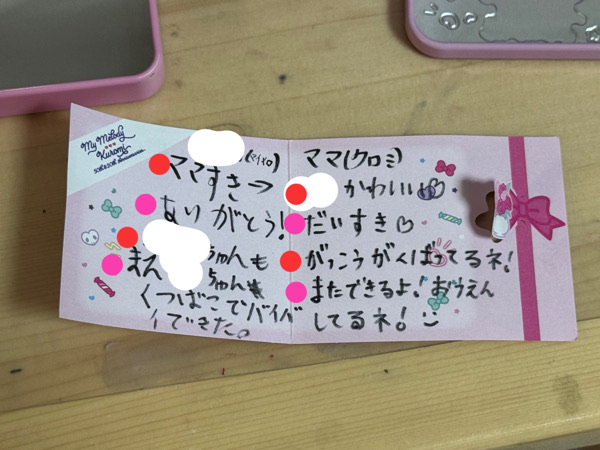 My Melody
Kuromi
(マイメロ)
ママすき→
ありがとう!
ちゃんも
まえ ちゃんも
くつばこでバイバ
イできた。
ママ(クロミ)
かわいい♡
だいすき♡
がっこうがくばってるネ!
またできるよ!おうえん
してるネ!